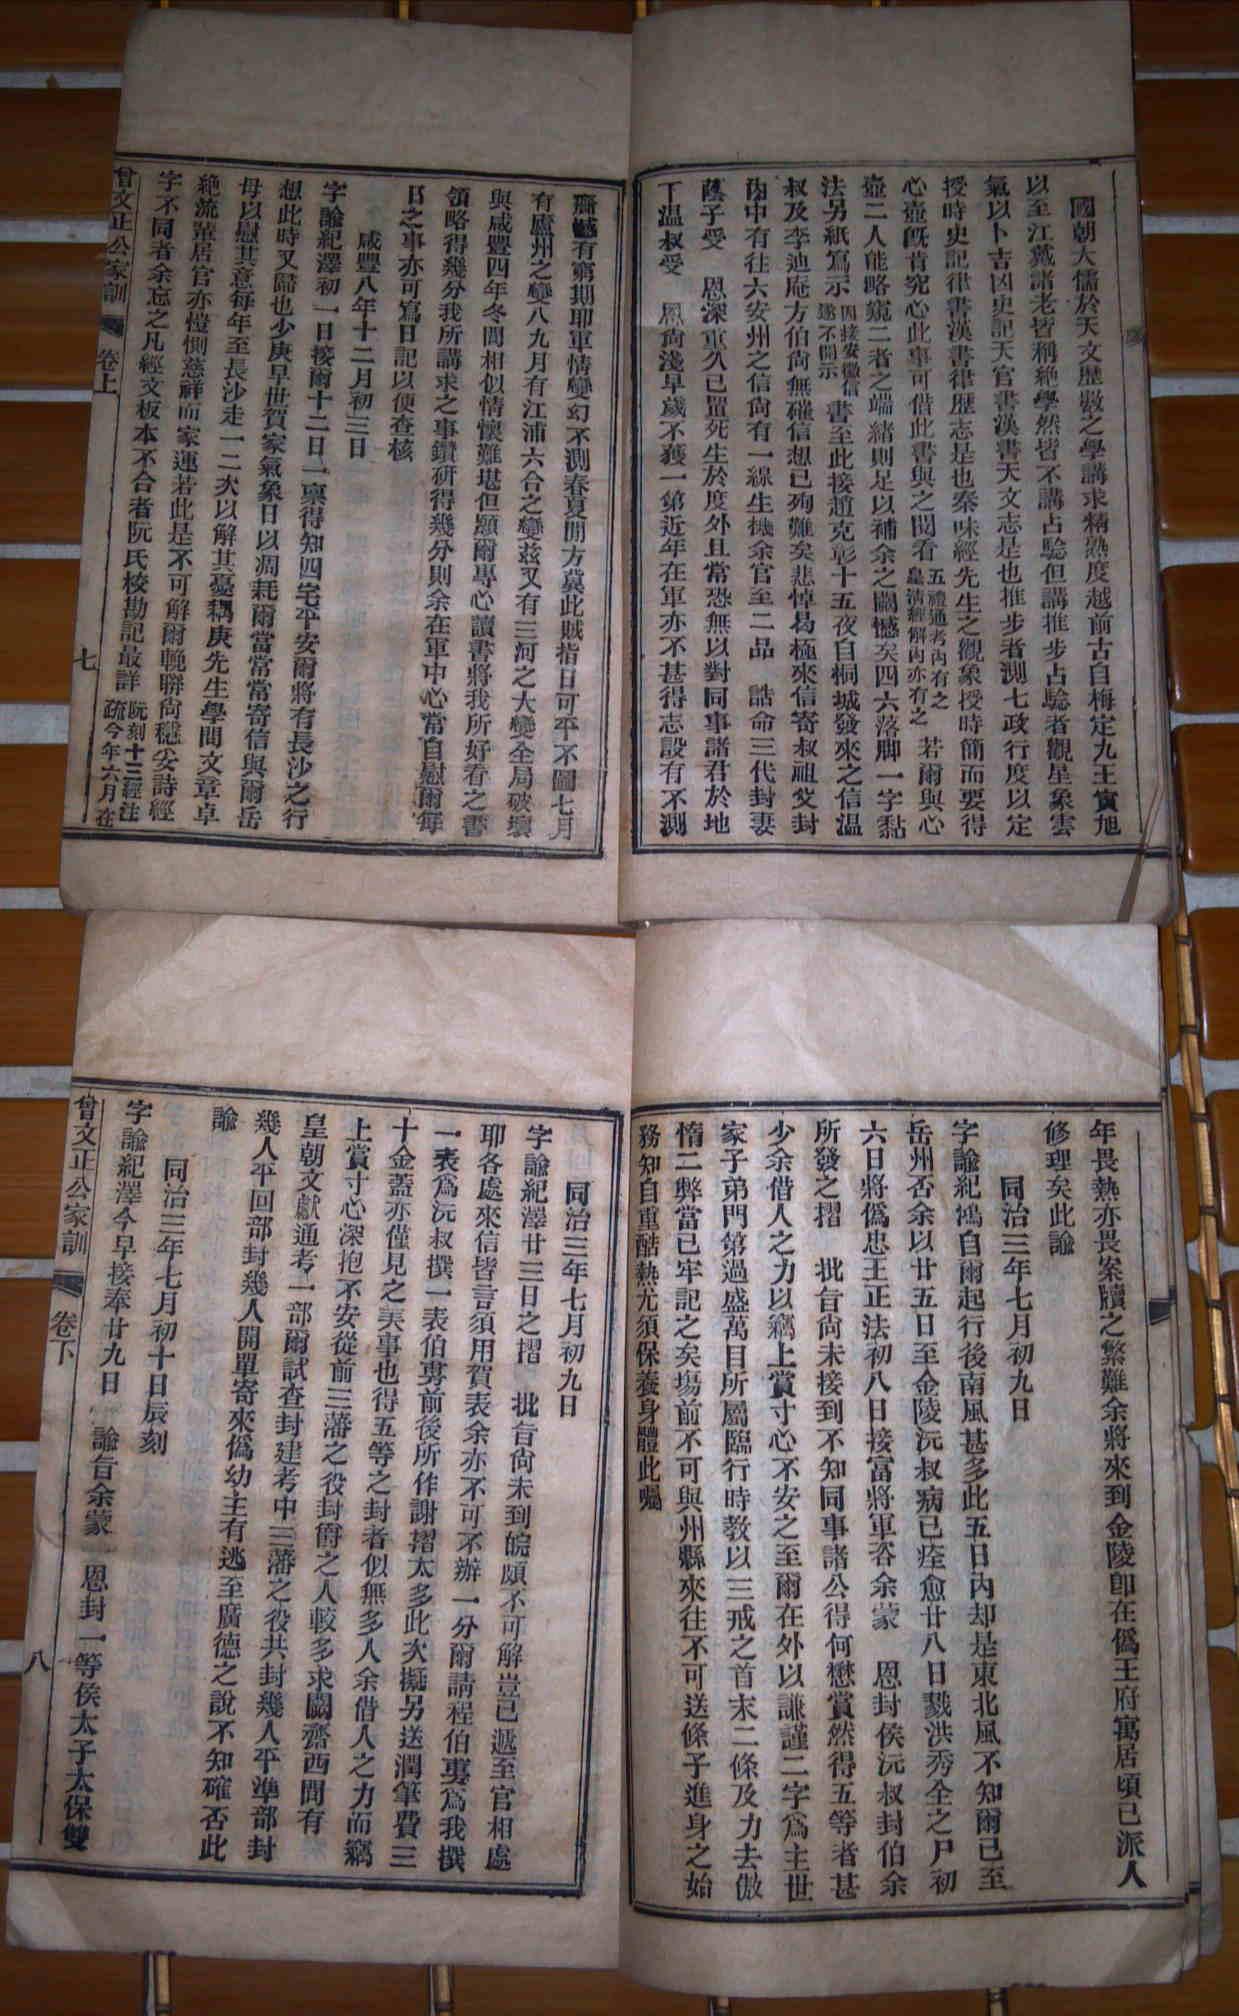 國朝大儒於天文歷數之學講求精熟度越前古自梅定九王寅旭
以至江戴諸老皆稱絕學然皆不講占驗但講推步占驗者觀星象雲
氣以卜吉凶史記天官書漢書天文志是也推步者測七政行度以定
授時史記律書漢書律歷志是也秦味經先生之觀象授時簡而要得
心壺既肯究心此事可借此書與之閱看五禮通考內有之皇清經解內亦有之若爾與心
壺二人能略窺二者之端緒則足以補余之闕憾矣四六落脚一字黏
法另紙寫示因接安徽信遂不開示書至此接趙克彰十五夜自桐城發來之信溫
叔及李迪庵方伯尚無確信想已殉難矣悲悼曷極來信寄叔祖父封
內中有往六安州之信尚有一線生機余官至二品　誥命三代封妻
蔭子受　恩深重久已置死生於度外且當恐無以對同事諸君於地
下溫叔受　恩尚淺早歲不獲一第近年在軍亦不甚得志設有不測
齎憾有窮期耶軍情變幻不測春夏間方冀此賊指日可平不圖七月
有廬州之變八九月有江浦六合之變茲又有三河之大變全局破壞
與咸豐四年冬間相似情懷難堪但願爾專心讀書將我所好看之書
領略得幾分我所講求之事鑽研得幾分則余在軍中心常自慰爾每
日之事亦可寫日記以便查核
咸豐八年十二月初三日
字諭紀澤初一日接爾十二日一稟得知四宅平安爾將有長沙之行
想此時又歸也少庚早世賀家氣象日以凋耗爾當常常寄信與爾岳
母以慰其意每年至長沙走一二次以解其憂耦庚先生學問文章卓
絕流輩居官亦愷惻慈祥而家運若此是不可解爾輓聯尚穩妥詩經
字不同者余忘之凡經文板本不合者阮氏校勘記最詳阮刻十三經注疏今年六月在
曾文正公家訓　卷上　七
年畏熱亦畏案牘之繁難余將來到金陵即在僞王府寓居頃已派人
修理矣此諭
同治三年七月初九日
字諭紀鴻自爾起行後南風甚多此五日內却是東北風不知爾已至
岳州否余以廿五日至金陵沅叔病已痊愈廿八日戮洪秀全之尸初
六日將僞忠王正法初八日接富將軍咨余蒙　恩封侯沅叔封伯余
所發之摺　批旨尚未接到不知同事諸公得何懋賞然得五等者甚
少余借人之力以竊上賞寸心不安之至爾在外以謙謹二字爲主世
家子弟門第過盛萬目所屬臨行時教以三戒之首末二條及力去傲
惰二弊當已牢記之矣場前不可與州縣來往不可送條子進身之始
務知自重酷熱尤須保養身體此囑
同治三年七月初九日
字諭紀澤廿三日之摺　批旨尚未到皖頗不可解豈已遞至官相處
耶各處來信皆言須用賀表余亦不可不辦一分爾請程伯旉爲我撰
一表爲沅叔撰一表伯旉前後所作謝摺太多此次擬另送潤筆費三
十金蓋亦僅見之美事也得五等之封者似無多人余借人之力而竊
上賞寸心深抱不安從前三藩之役封爵之人較多求闕齋西間有
皇朝文獻通考一部爾試查封建考中三藩之役共封幾人平準部封
幾人平回部封幾人開單寄來僞幼主有逃至廣德之說不知確否此
諭
同治三年七月初十日辰刻
字諭紀澤今早接奉廿九日　諭旨余蒙　恩封一等侯太子太保雙
曾文正公家訓　卷下　八